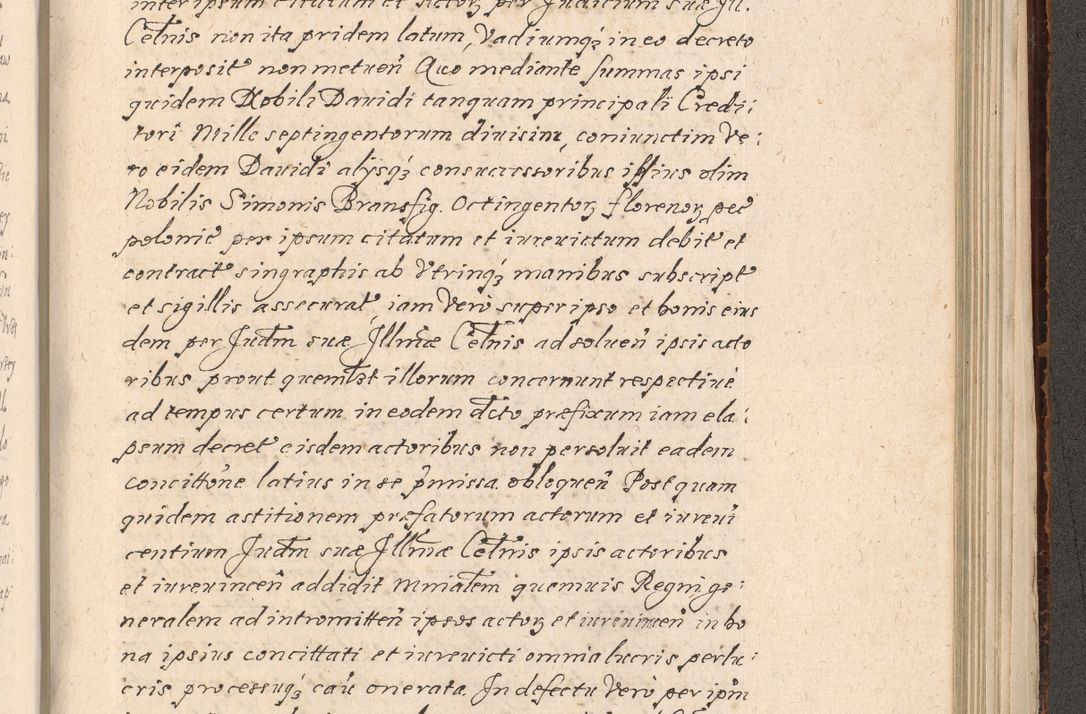 inter ipsum citatum et actorẽ per Judicium suæ Ill.
Celsnis non ita pridem latum, Vadiumq́ in eo decreto
interposit non metueñ Quo mediante summas ipsi
quidem Nobili Dauidi tanquam principali Credi:
tori Mille septingentorum diuisim, coniunctim Ve:
ro eidem Dauidi alysq́ consuccessoribus istius olim
Nobilis Simonis Bransfig. Octingentorʒ florenorʒ pec
polonic per ipsum citatum et iureuictum debit et
contract singraphis ab Vtrinq́ manibus subscript
et sigillis assecurat, iam Verò super ipso et bonis eius
dem per Judm suæ Illmæ Celsnis adsolueñ ipsis acto
ribus prout quemlet illorum concernunt respectiuè
ad tempus certum in eodem dcto præfixum iam ela:
psum decret eisdem actoribus non persoluit eadem
concittõne latius in se p̃missa obloqueñ Postquam
quidem astitionem præfatorum actorum et iureui
centium Judm suæ Illmæ Celsnis ipsis actoribus
et iureuinceñ addidit Mnialem quemuis Regni ge:
neralem ad intromitteñ ipsos actorʒ et iureuinceñ in bo
na ipsius concittati et iureuicti omnia lucris perlu:
cris processuq́ cau onerata. In defectu Verò per ipm